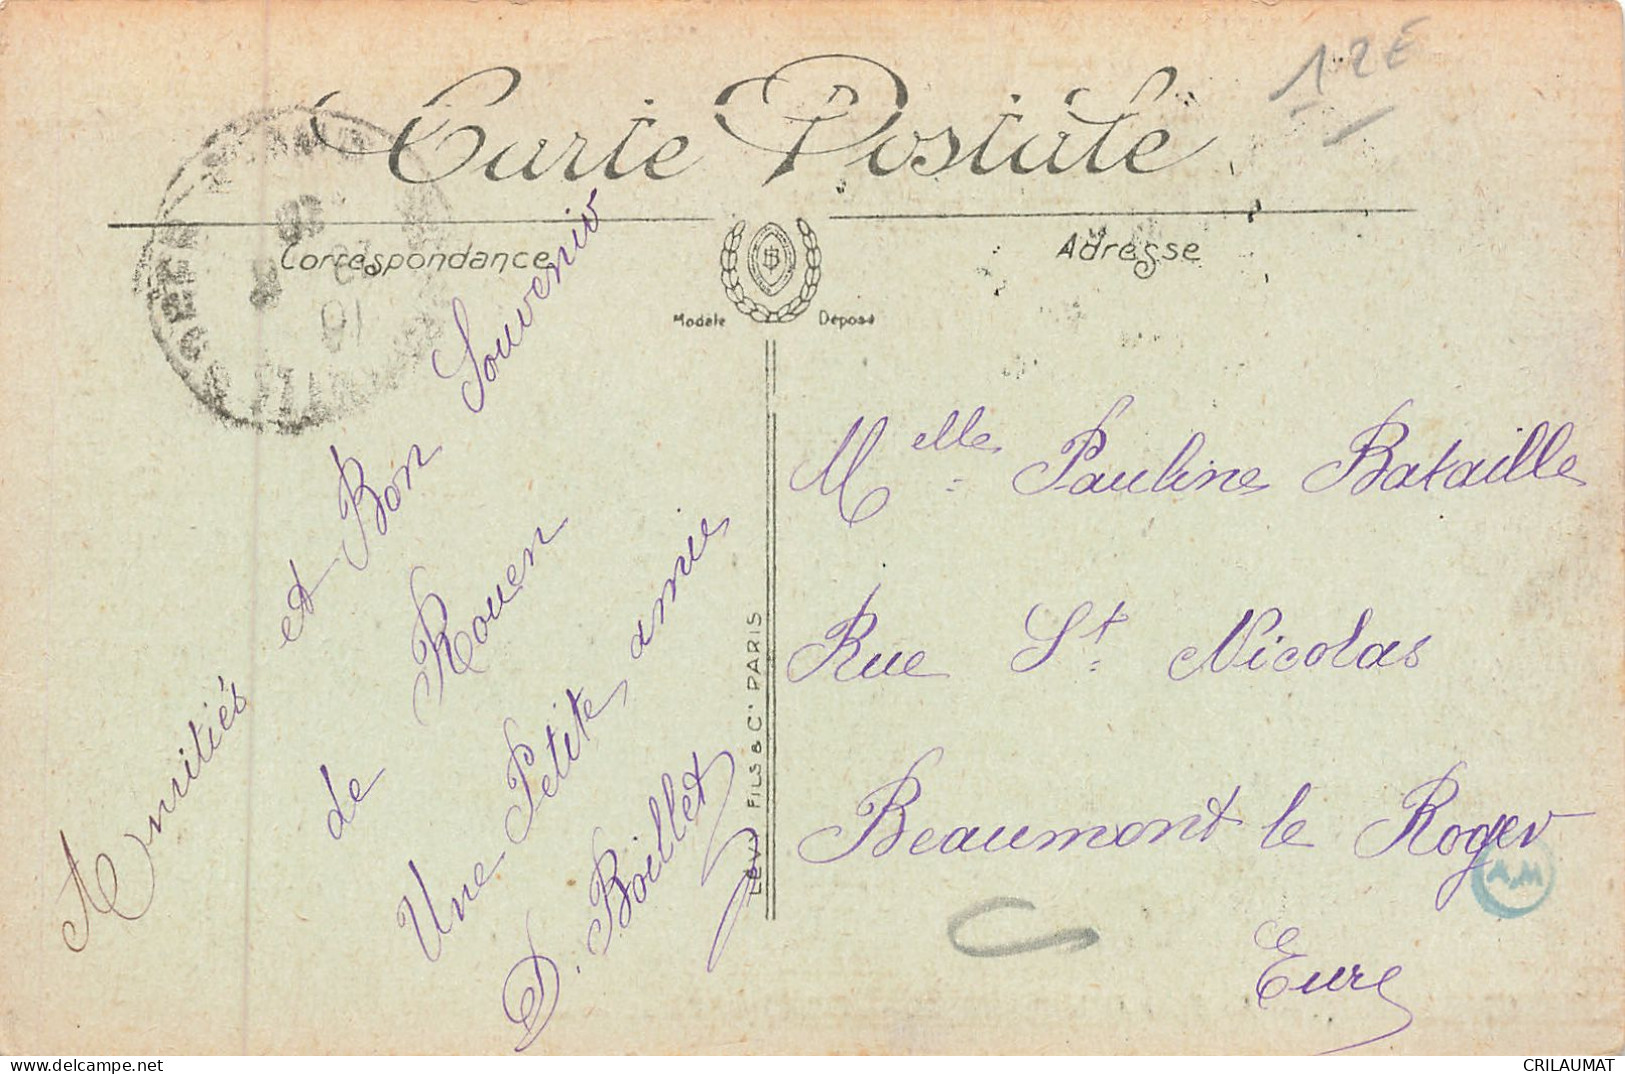 12E
Carte Postale
Correspondance
Adresse
Modèle Déposé
Amitiés et Bon Souvenir
de Rouen
Une Petite amie
D. Boillet
LÉVY FILS & Cie PARIS
Melle Pauline Bataille
Rue St Nicolas
Beaumont le Roger
Eure
A.M
delcampe.net
CRILAUMAT